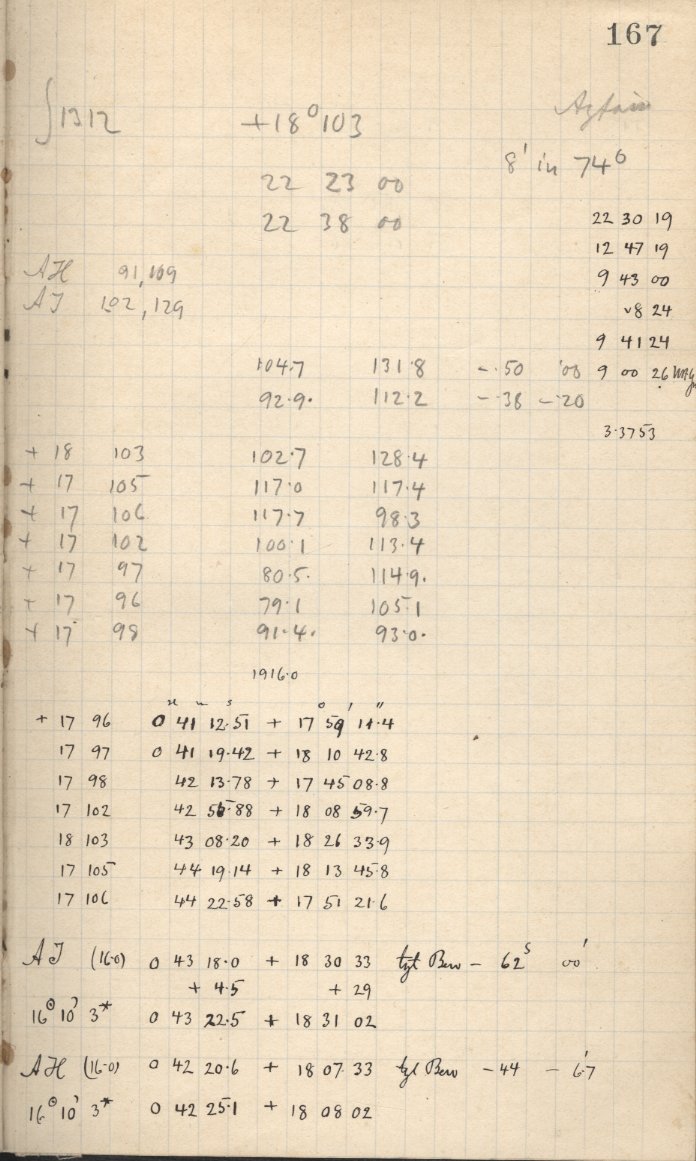 167
∫1312 +18° 103
8' in 74⁶
22 23 00
22 30 19
22 38 00
12 47 19
AH 91,109
9 43 00
AJ 102,129
8 24
9 41 24
104.7 131.8 -.50 '00 9 00 26
92.9. 112.2 -.38 -.20
3.3753
+ 18 103 102.7 128.4
+ 17 105 117.0 117.4
+ 17 106 117.7 98.3
+ 17 102 100.1 113.4
+ 17 97 80.5. 114.9.
+ 17 96 79.1 105.1
+ 17 98 91.4. 93.0.
1916.0
H m s ° ' "
+ 17 96 0 41 12.51 + 17 59 14.4
17 97 0 41 19.42 + 18 10 42.8
17 98 42 13.78 + 17 45 08.8
17 102 42 .88 + 18 08 59.7
18 103 43 08.20 + 18 26 33.9
17 105 44 19.14 + 18 13 45.8
17 106 44 22.58 + 17 51 21.6
AJ (16.0) 0 43 18.0 + 18 30 33 - 62ˢ 00'
+ 4.5 + 29
16° 10' 3* 0 43 22.5 + 18 31 02
AH (16.0) 0 42 20.6 + 18 07 33 -44 - 6'.7
16° 10' 3* 0 42 25.1 + 18 08 02